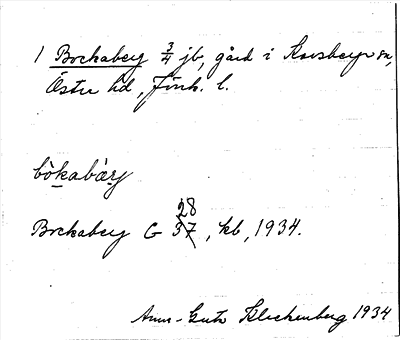 1 Bockaberg 3/4 jb, gård i Korsberga sn,
Östra hd, Jönk. l.
bòkabàrj
Bockaberg G 37 28, kb, 1934.
Ann-Gurh Kleckenberg 1934